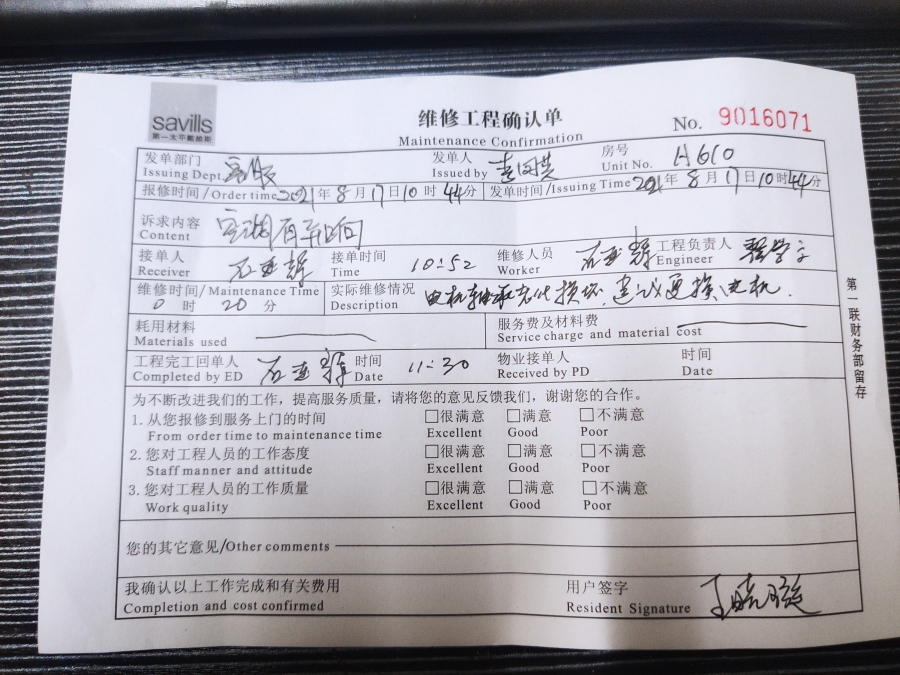 savills
第一太平戴维斯
维修工程确认单
Maintenance Confirmation
No. 9016071
发单部门 客服 发单人 房号
Issuing Dept. Issued by Unit No. A610
报修时间/Order time 2021年8月17日10时44分 发单时间/Issuing Time 2021年8月17日10时44分
诉求内容 空调有异响
Content
接单人 石亚辉 接单时间 10:52 维修人员 石亚辉 工程负责人
Receiver Time Worker Engineer
维修时间/Maintenance Time 实际维修情况 电机轴承老化损坏,建议更换电机.
0时20分 Description
耗用材料 服务费及材料费
Materials used Service charge and material cost
工程完工回单人 石亚辉 时间 11:30 物业接单人 时间
Completed by ED Date Received by PD Date
为不断改进我们的工作,提高服务质量,请将您的意见反馈我们,谢谢您的合作。
1.从您报修到服务上门的时间 □很满意 □满意 □不满意
From order time to maintenance time Excellent Good Poor
2.您对工程人员的工作态度 □很满意 □满意 □不满意
Staff manner and attitude Excellent Good Poor
3.您对工程人员的工作质量 □很满意 □满意 □不满意
Work quality Excellent Good Poor
您的其它意见/Other comments
我确认以上工作完成和有关费用 用户签字
Completion and cost confirmed Resident Signature
第一联财务部留存